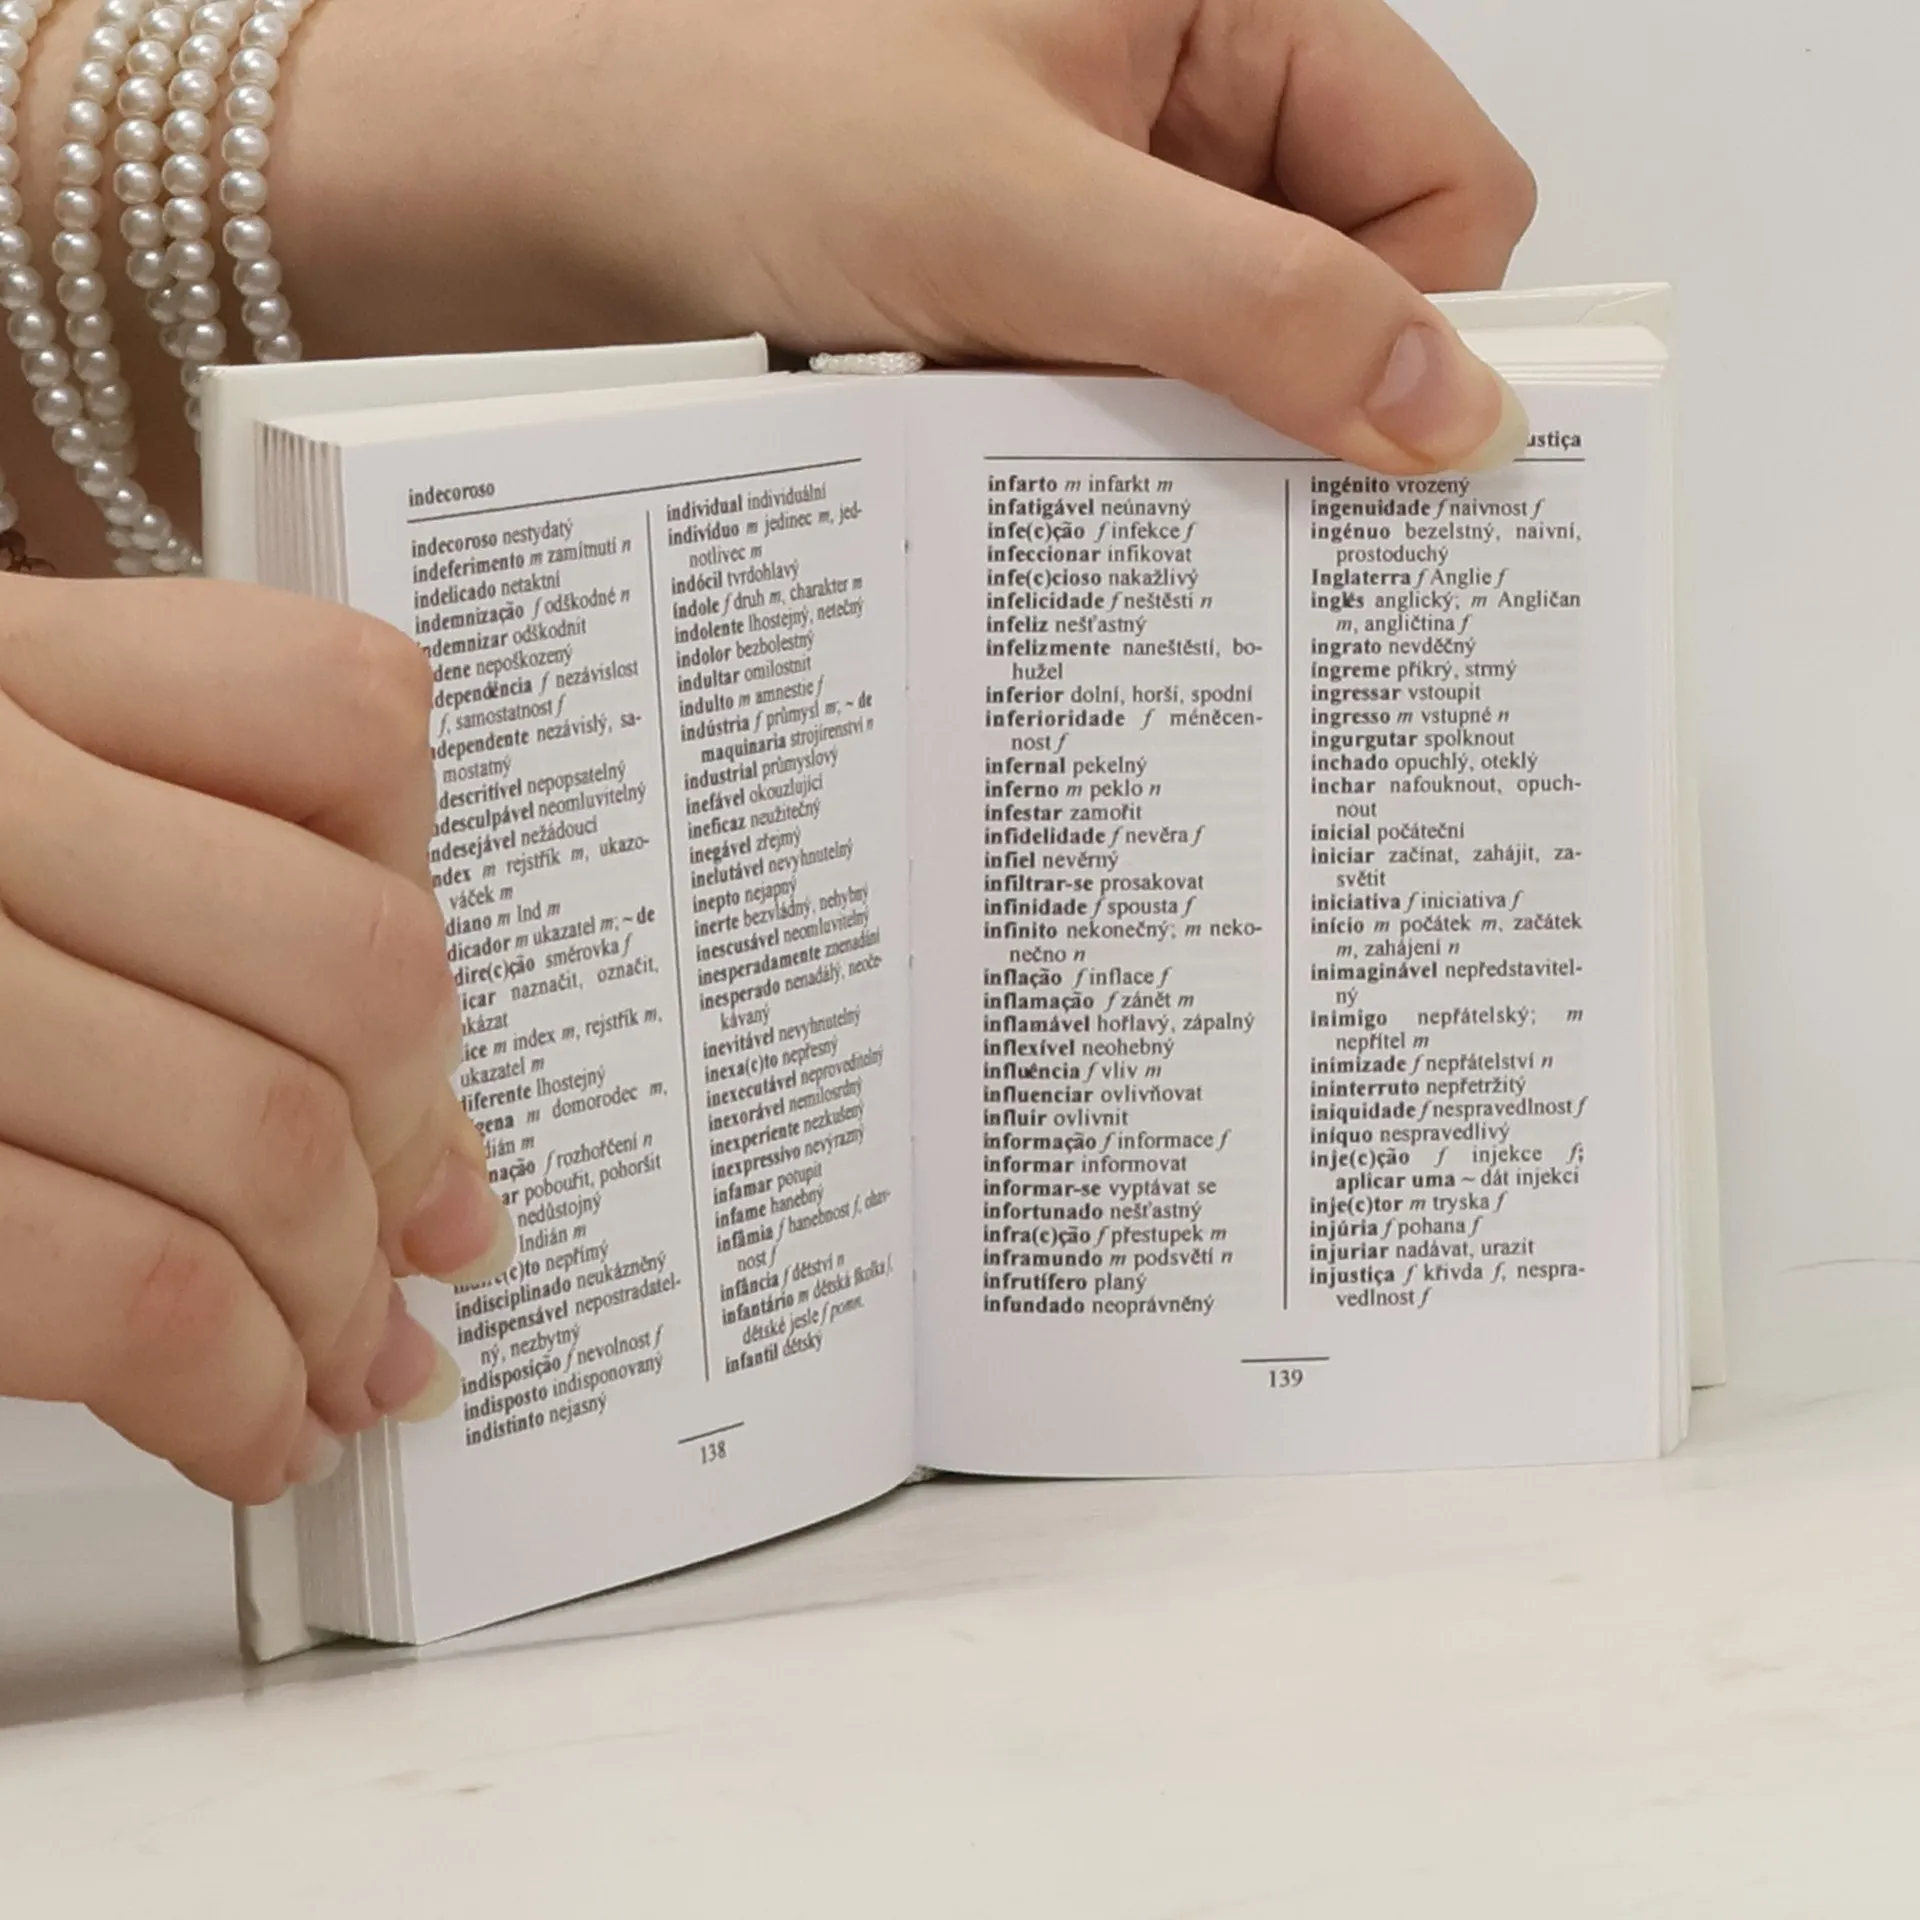 indecoroso
indecoroso nestydatý
indeferimento m zamítnutí n
indelicado netaktní
indemnização f odškodné n
ndemnizar odškodnit
dene nepoškozený
dependência f nezávislost
f, samostatnost f
dependente nezávislý, sa-
mostatný
descritível nepopsatelný
desculpável neomluvitelný
ndesejável nežádoucí
ndex m rejstřík m, ukazo-
váček m
diano m Ind m
dicador m ukazatel m; ~ de
dire(c)ção směrovka f
icar naznačit, označit,
ukázat
ice m index m, rejstřík m,
ukazatel m
diferente lhostejný
gena m domorodec m,
dián m
nação f rozhořčení n
ar pobouřit, pohoršit
nedůstojný
Indián m
(c)to nepřímý
indisciplinado neukázněný
indispensável nepostradatel-
ný, nezbytný
indisposição f nevolnost f
indisposto indisponovaný
indistinto nejasný
individual individuální
indivíduo m jedinec m, jed-
notlivec m
indócil tvrdohlavý
índole f druh m, charakter m
indolente lhostejný, netečný
indolor bezbolestný
indultar omilostnit
indulto m amnestie f
indústria f průmysl m; ~ de
maquinaria strojírenství n
industrial průmyslový
inefável okouzlující
ineficaz neužitečný
inegável zřejmý
inelutável nevyhnutelný
inepto nejapný
inerte bezvládný, nehybný
inescusável neomluvitelný
inesperadamente znenadání
inesperado nenadálý, neoče-
kávaný
inevitável nevyhnutelný
inexa(c)to nepřesný
inexecutável neproveditelný
inexorável nemilosrdný
inexperiente nezkušený
inexpressivo nevýrazný
infamar potupit
infame hanebný
infâmia f hanebnost f, ohav-
nost f
infância f dětství n
infantário m dětská školka f,
dětské jesle f pomn.
infantil dětský
138
ustiça
infarto m infarkt m
infatigável neúnavný
infe(c)ção f infekce f
infeccionar infikovat
infe(c)cioso nakažlivý
infelicidade f neštěstí n
infeliz nešťastný
infelizmente naneštěstí, bo-
hužel
inferior dolní, horší, spodní
inferioridade f méněcen-
nost f
infernal pekelný
inferno m peklo n
infestar zamořit
infidelidade f nevěra f
infiel nevěrný
infiltrar-se prosakovat
infinidade f spousta f
infinito nekonečný; m neko-
nečno n
inflação f inflace f
inflamação f zánět m
inflamável hořlavý, zápalný
inflexível neohebný
influência f vliv m
influenciar ovlivňovat
influir ovlivnit
informação f informace f
informar informovat
informar-se vyptávat se
infortunado nešťastný
infra(c)ção f přestupek m
inframundo m podsvětí n
infrutífero planý
infundado neoprávněný
ingénito vrozený
ingenuidade f naivnost f
ingénuo bezelstný, naivní,
prostoduchý
Inglaterra f Anglie f
inglês anglický; m Angličan
m, angličtina f
ingrato nevděčný
íngreme příkrý, strmý
ingressar vstoupit
ingresso m vstupné n
ingurgutar spolknout
inchado opuchlý, oteklý
inchar nafouknout, opuch-
nout
inicial počáteční
iniciar začínat, zahájit, za-
světit
iniciativa f iniciativa f
início m počátek m, začátek
m, zahájení n
inimaginável nepředstavitel-
ný
inimigo nepřátelský; m
nepřítel m
inimizade f nepřátelství n
ininterruto nepřetržitý
iniquidade f nespravedlnost f
iníquo nespravedlivý
inje(c)ção f injekce f;
aplicar uma ~ dát injekci
inje(c)tor m tryska f
injúria f pohana f
injuriar nadávat, urazit
injustiça f křivda f, nespra-
vedlnost f
139